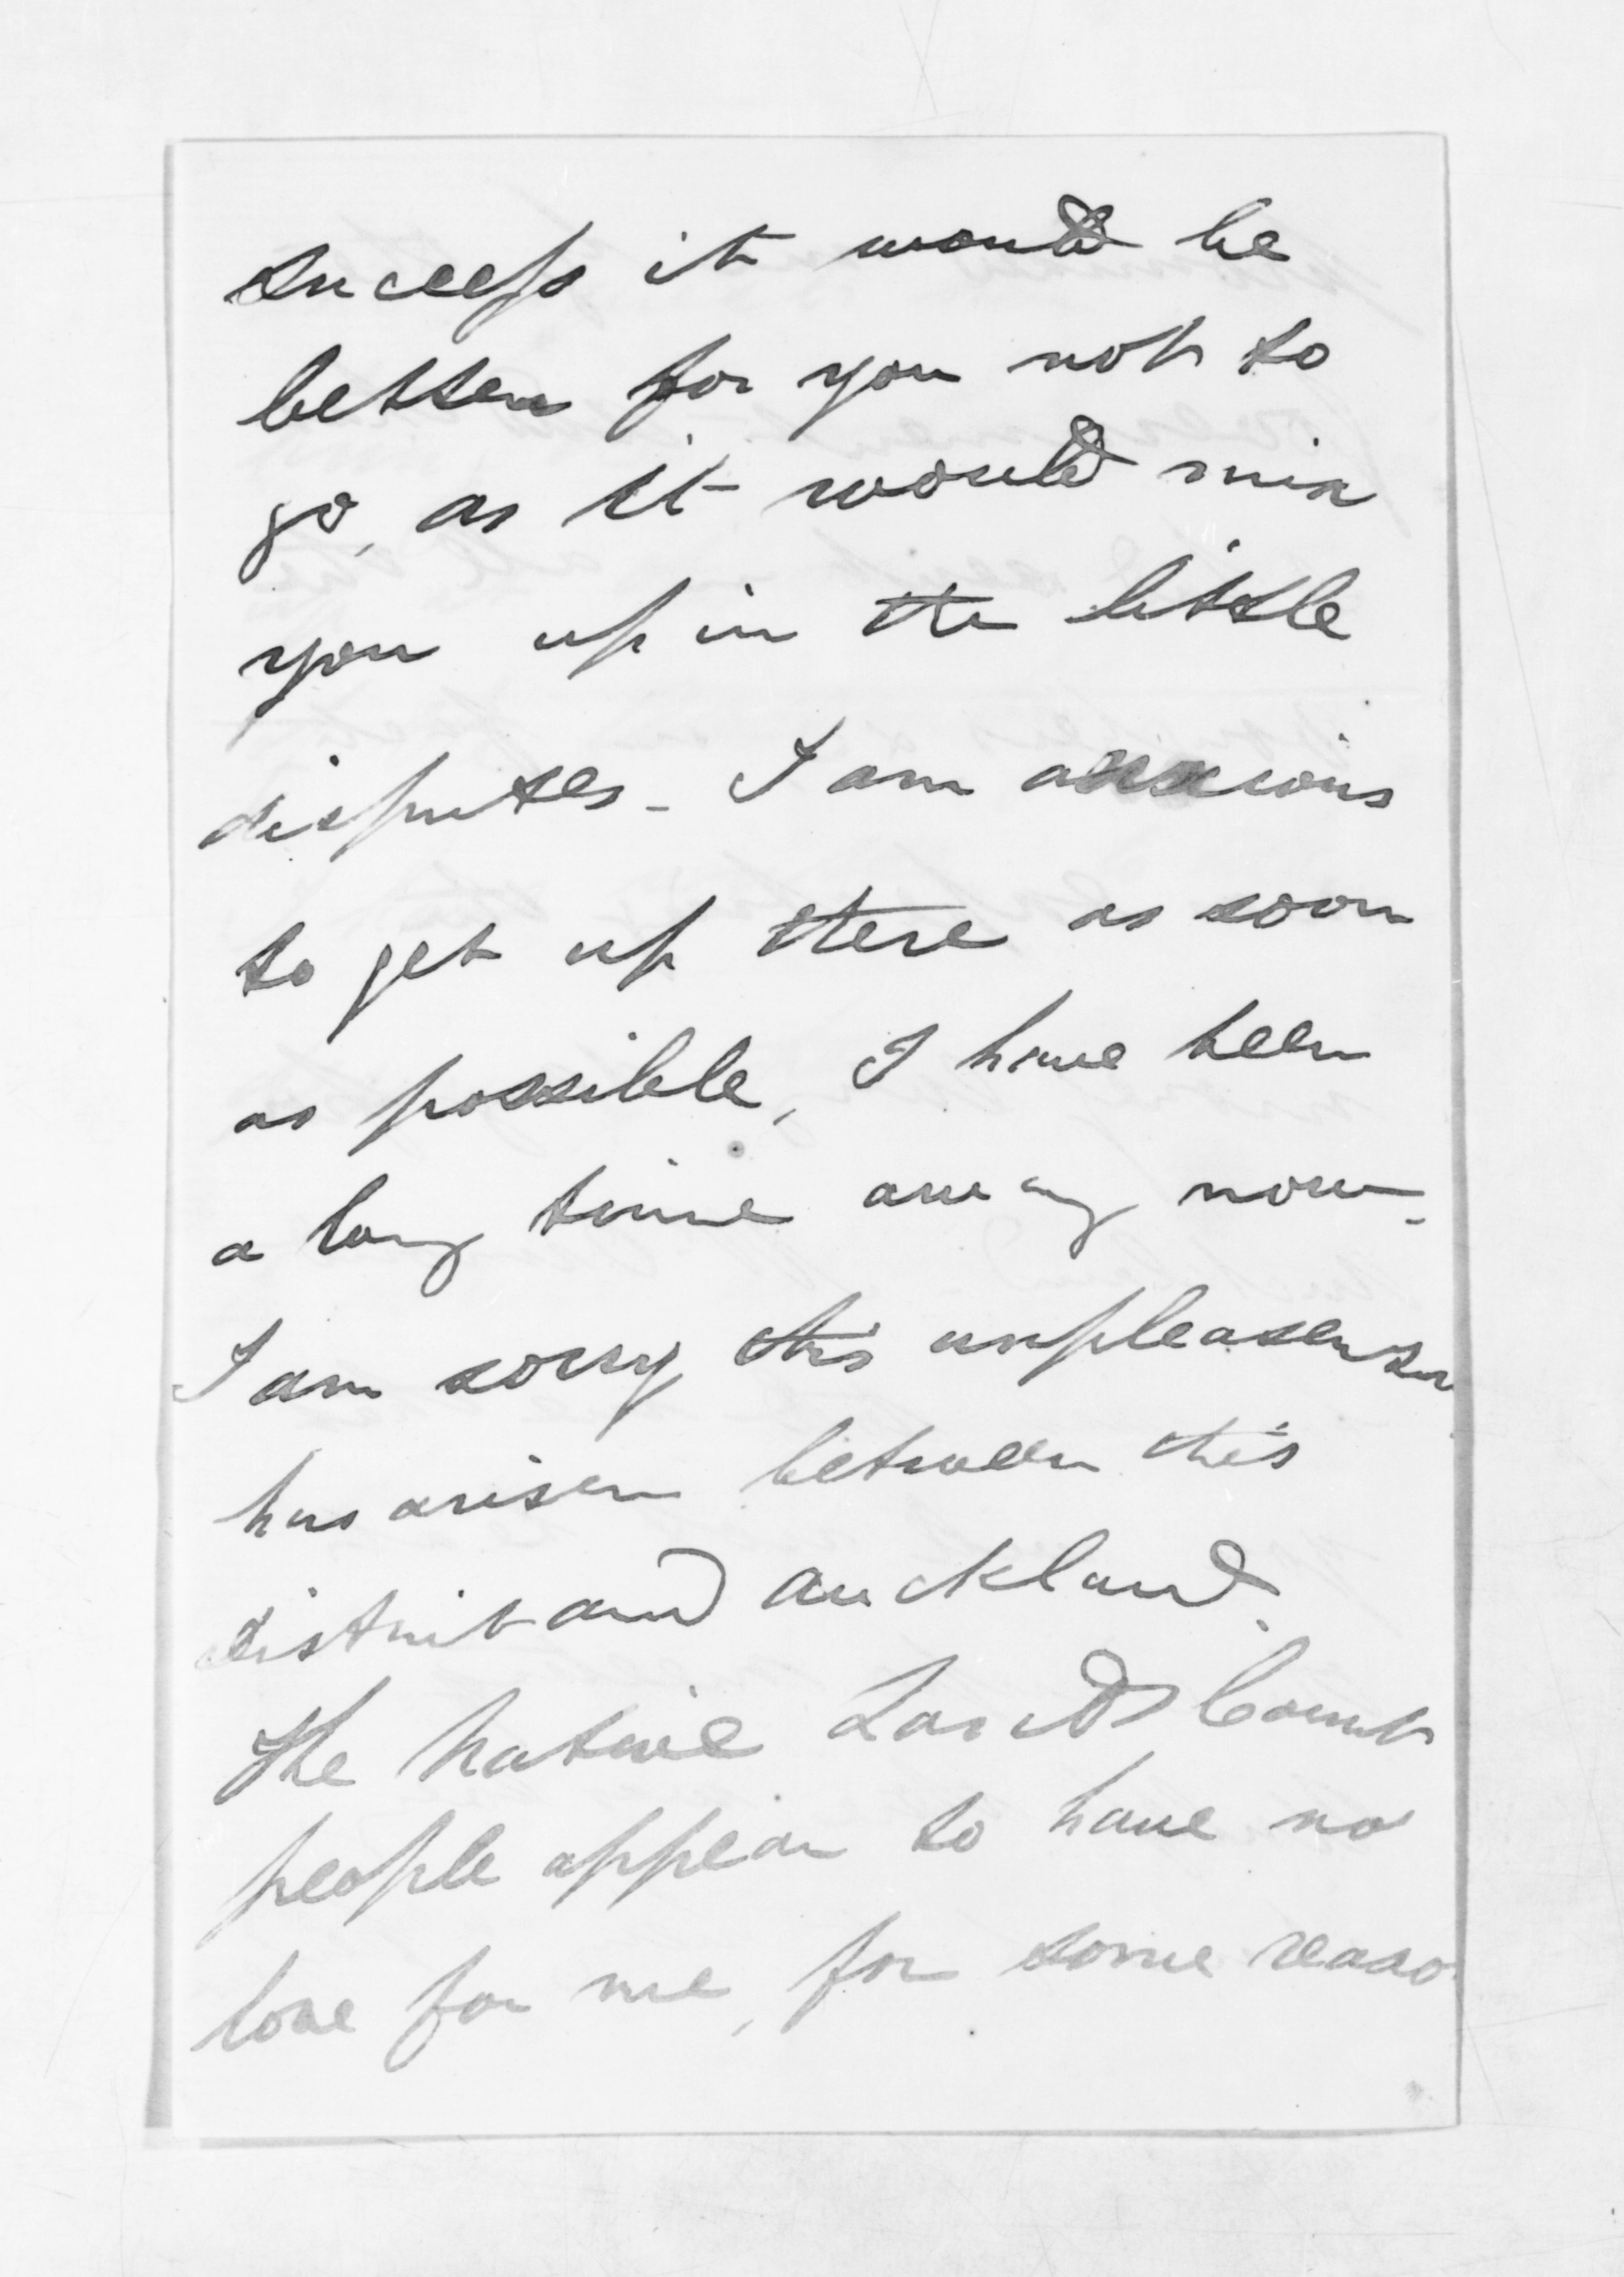 success it would be
better for you not to
go, as it would mix
you up in the little
disputes - I am anxious
to get up there as soon
as possible, I have been
a long time away now.
I am sorry this unpleasantn
has arisen between this
district and Auckland.
The Native Lands Court
people appear to have no
love for me, for some reaso